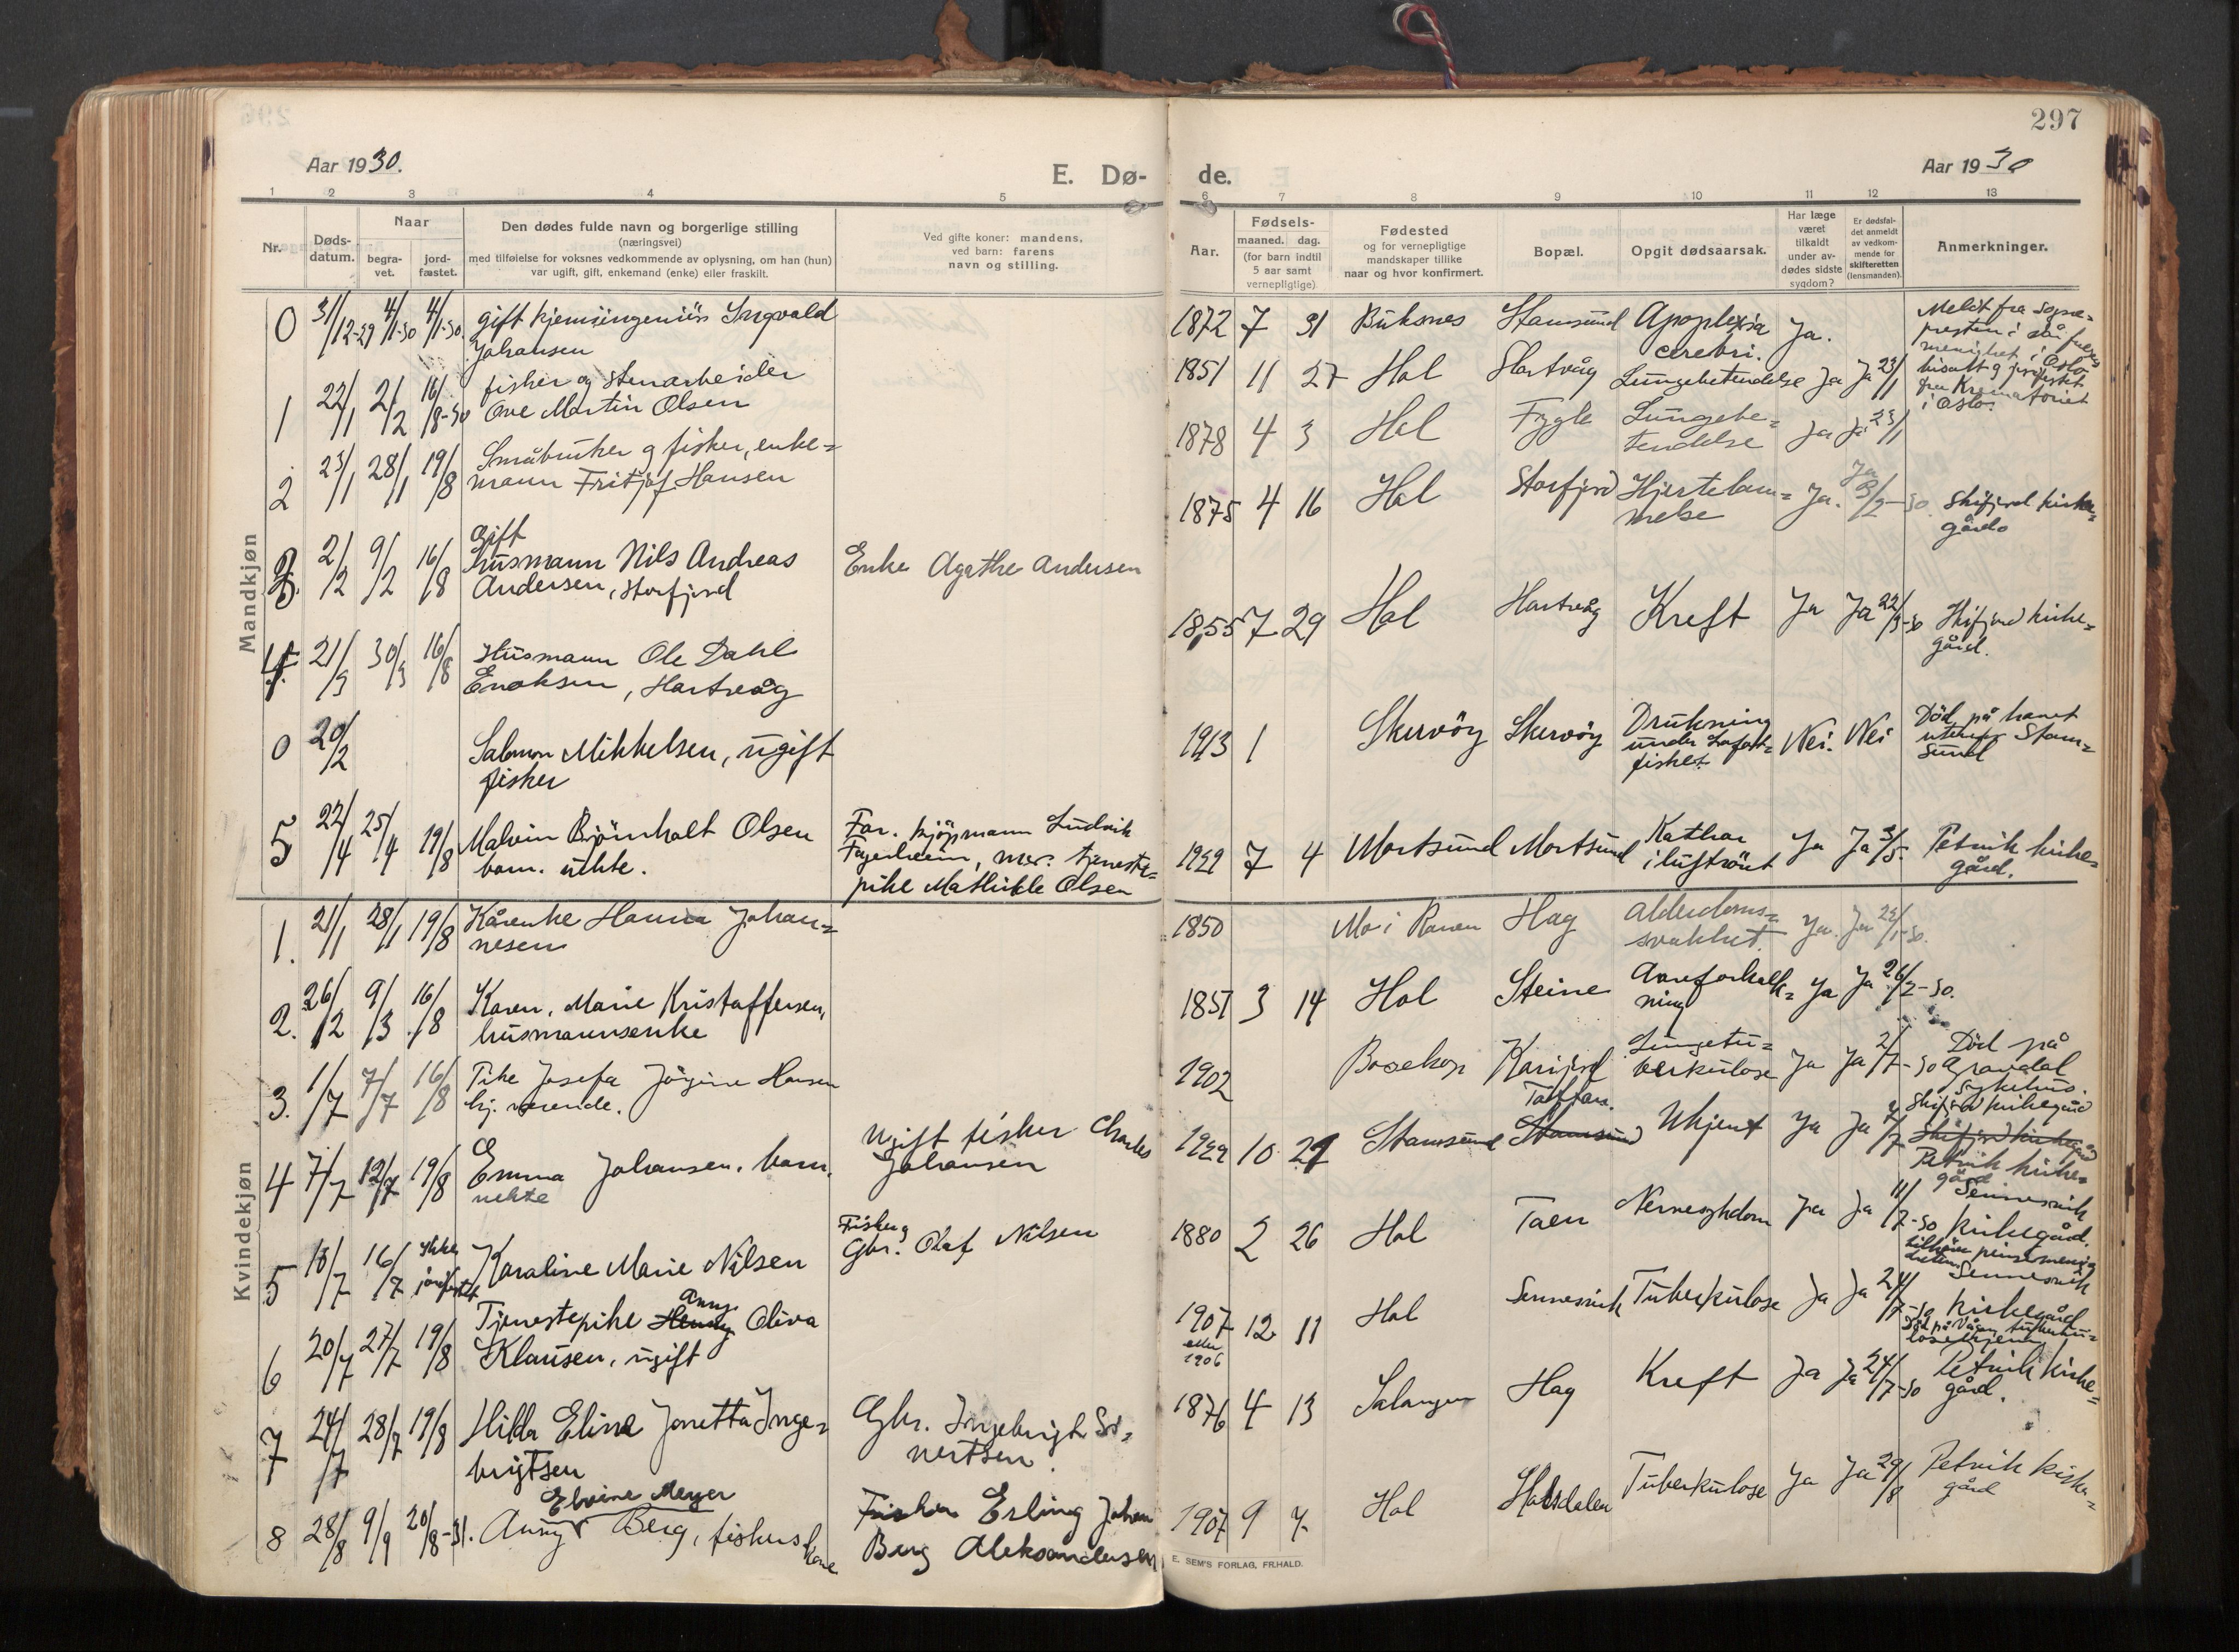 297
Aar 1930.
E. Dø-
de.
Aar 1930
1 2 3 4 5 6 7 8 9 10 11 12 13
Nr.
Døds-
datum.
Naar
begra-
vet.
jord-
fæstet.
Den dødes fulde navn og borgerlige stilling
(næringsvei)
med tilføielse for voksnes vedkommende av oplysning, om han (hun)
var ugift, gift, enkemand (enke) eller fraskilt.
Ved gifte koner: mandens,
ved barn: farens
navn og stilling.
Aar.
Fødsels-
maaned. dag.
(for barn indtil
5 aar samt
vernepligtige)
Fødested
og for vernepligtige
mandskaper tillike
naar og hvor konfirmert.
Bopæl.
Opgit dødsaarsak.
Har læge
været
tilkaldt
under av-
dødes sidste
sygdom?
Er dødsfal-
det anmeldt
av vedkom-
mende for
skifteretten
(lensmanden).
Anmerkninger.
Mandkjøn
0 31/12-29 4/1-30 4/1-30. gift kjemiingeniör Ingvald
Johansen
1872 7 31 Buksnes Stamsund Apoplexia
cerebri. Ja.
Meldt fra sogne=
presten i
menighet i Oslo
fra Krematoriet
i Oslo.
1 22/1 2/2 16/8-30 fisker og stenarbeider
Ove Martin Olsen
1851 11 27 Hol Hartvåg Lungebetendelse Ja Ja 23/1
2 23/1 28/1 19/8 Småbruker og fisker, enke=
mann Fritjof Hansen
1878 4 3 Hol Fygle Lungebe=
tendelse Ja Ja 23/1
3. 2/2 9/2 16/8 Gift
husmann Nils Andreas
Andersen, Storfjord
Enke Agathe Andersen
1875 4 16 Hol Storfjord Hjertelam=
melse Ja. Ja 3/2-30 Skifjord kirke=
gård
4. 21/3 30/3 16/8 Husmann Ole Dahl
Enoksen, Hartvåg
1855 7 29 Hol Hartvåg Kreft Ja Ja 22/3-30 Skifjord kirke=
gård.
0 20/2 Salomon Mikkelsen, ugift
fisker
1913 1 Skervöy Skervöy Drukning
under Lofot=
fisket. Nei. Nei Död på havet
utenfor Stam=
sund
5 22/4 25/4 19/8 Malvin Björnholt Olsen
barn. uekte.
Far. kjöpmann Ludvik
Fagerheim, mor. tjeneste=
pike Mathilde Olsen
1929 7 4 Mortsund Mortsund Kathar
i luftrört Ja Ja 3/5. Petvik kirke=
gård.
Kvindekjøn
1. 21/1 28/1 19/8 Kårenke Hanna Johan=
nesen
1850 Mo i Ranen Hag Alderdoms=
svakhet. Ja. Ja 23/1-30.
2. 26/2 9/3 16/8 Karen, Marie Kristoffersen,
husmannsenke
1851 3 14 Hol Steine Aareforkalk=
ning Ja Ja 26/2-30.
3. 1/7 7/7 16/8 Pike Josefa Jörgine Hansen
hj. værende.
1902 Bosekop Lungetu=
berkulose Ja Ja 2/7-30 Död på
Gravdal
sykehus.
Skifjord kirkegård
4 7/7 12/7 19/8 Emma Johansen. barn,
uekte
Ugift fisker Charles
Johansen
1929 10 21 Stamsund Stamsund Ukjent Ja Ja Skifjord kirkegård
Petvik kirke=
gård
5 13/7 16/7 Ikke
jordfestet Karaline Marie Nilsen
Fisker og
Gbr. Olaf Nilsen
1880 2 26 Hol Taen Nervesykdom Ja Ja 11/7-30 Sennesvik
kirkegård.
6 20/7 27/7 19/8 Tjenestepike Henny Anny Oliva
Klausen, ugift
1907
eller
1906 12 11 Hol Sennesvik Tuberkulose Ja Ja 24/7-30 Sennesvik
kirkegård
7 24/7 28/7 19/8 Hilda Eline Jonetta Inge=
brigtsen
Gbr. Ingebrigt Si=
vertsen.
1876 4 13 Salangen Hag Kreft Ja Ja 24/7-30 Petvik kirke=
gård.
8 28/8 9/9 20/8-31. Anny Elvine Meyer Berg, fiskers kone
Fisker Erling Johan
Berg Aleksandersen
1907 9 7 Hol Holsdalen Tuberkulose Ja Ja 29/8 Petvik kirke=
gård
E. SEM'S FORLAG, FR.HALD.